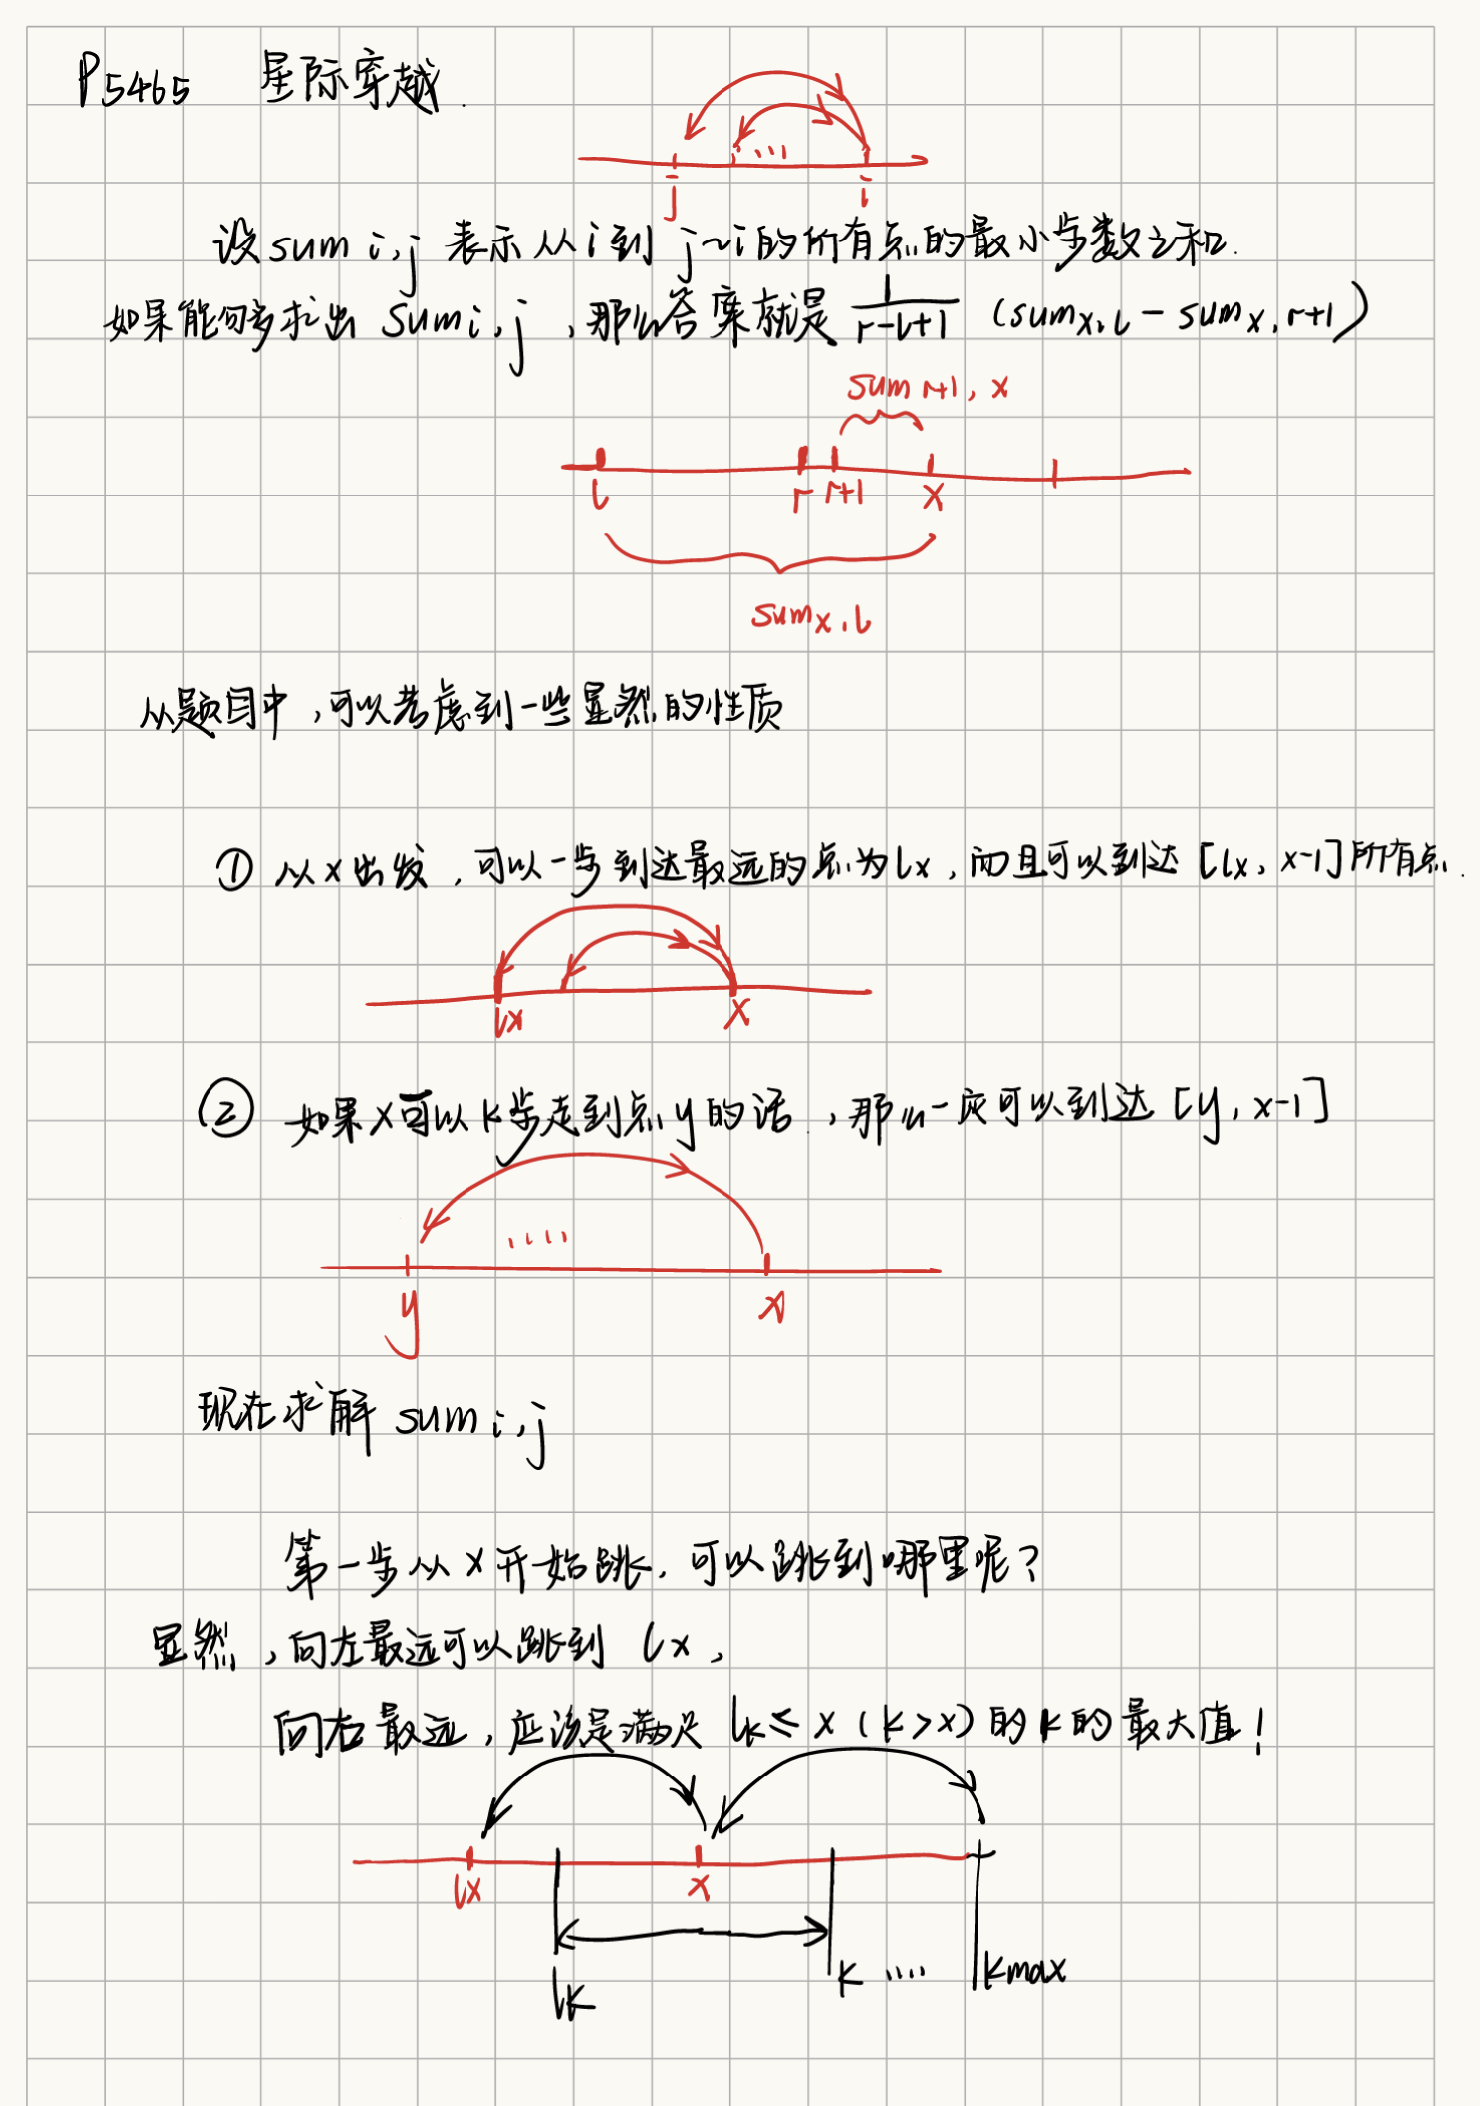 P5465 星际穿越.
j i
设sum i,j 表示从i到 j~i的所有点的最小步数之和.
如果能够求出 sum i,j ,那么答案就是 1/(r-l+1) (sum x,l - sum x,r+1)
sum r+1, x
l r r+1 x
sum x,l
从题目中,可以考虑到一些显然的性质
① 从x出发,可以一步到达最远的点为lx,而且可以到达[lx, x-1]所有点.
lx x
② 如果x可以k步走到点y的话,那么一定可以到达[y, x-1]
y x
现在求解 sum i,j
第一步从x开始跳,可以跳到哪里呢?
显然,向左最远可以跳到 lx,
向右最远,应该是满足 lk ≤ x (k>x)的k的最大值!
lx x
lk k .... kmax